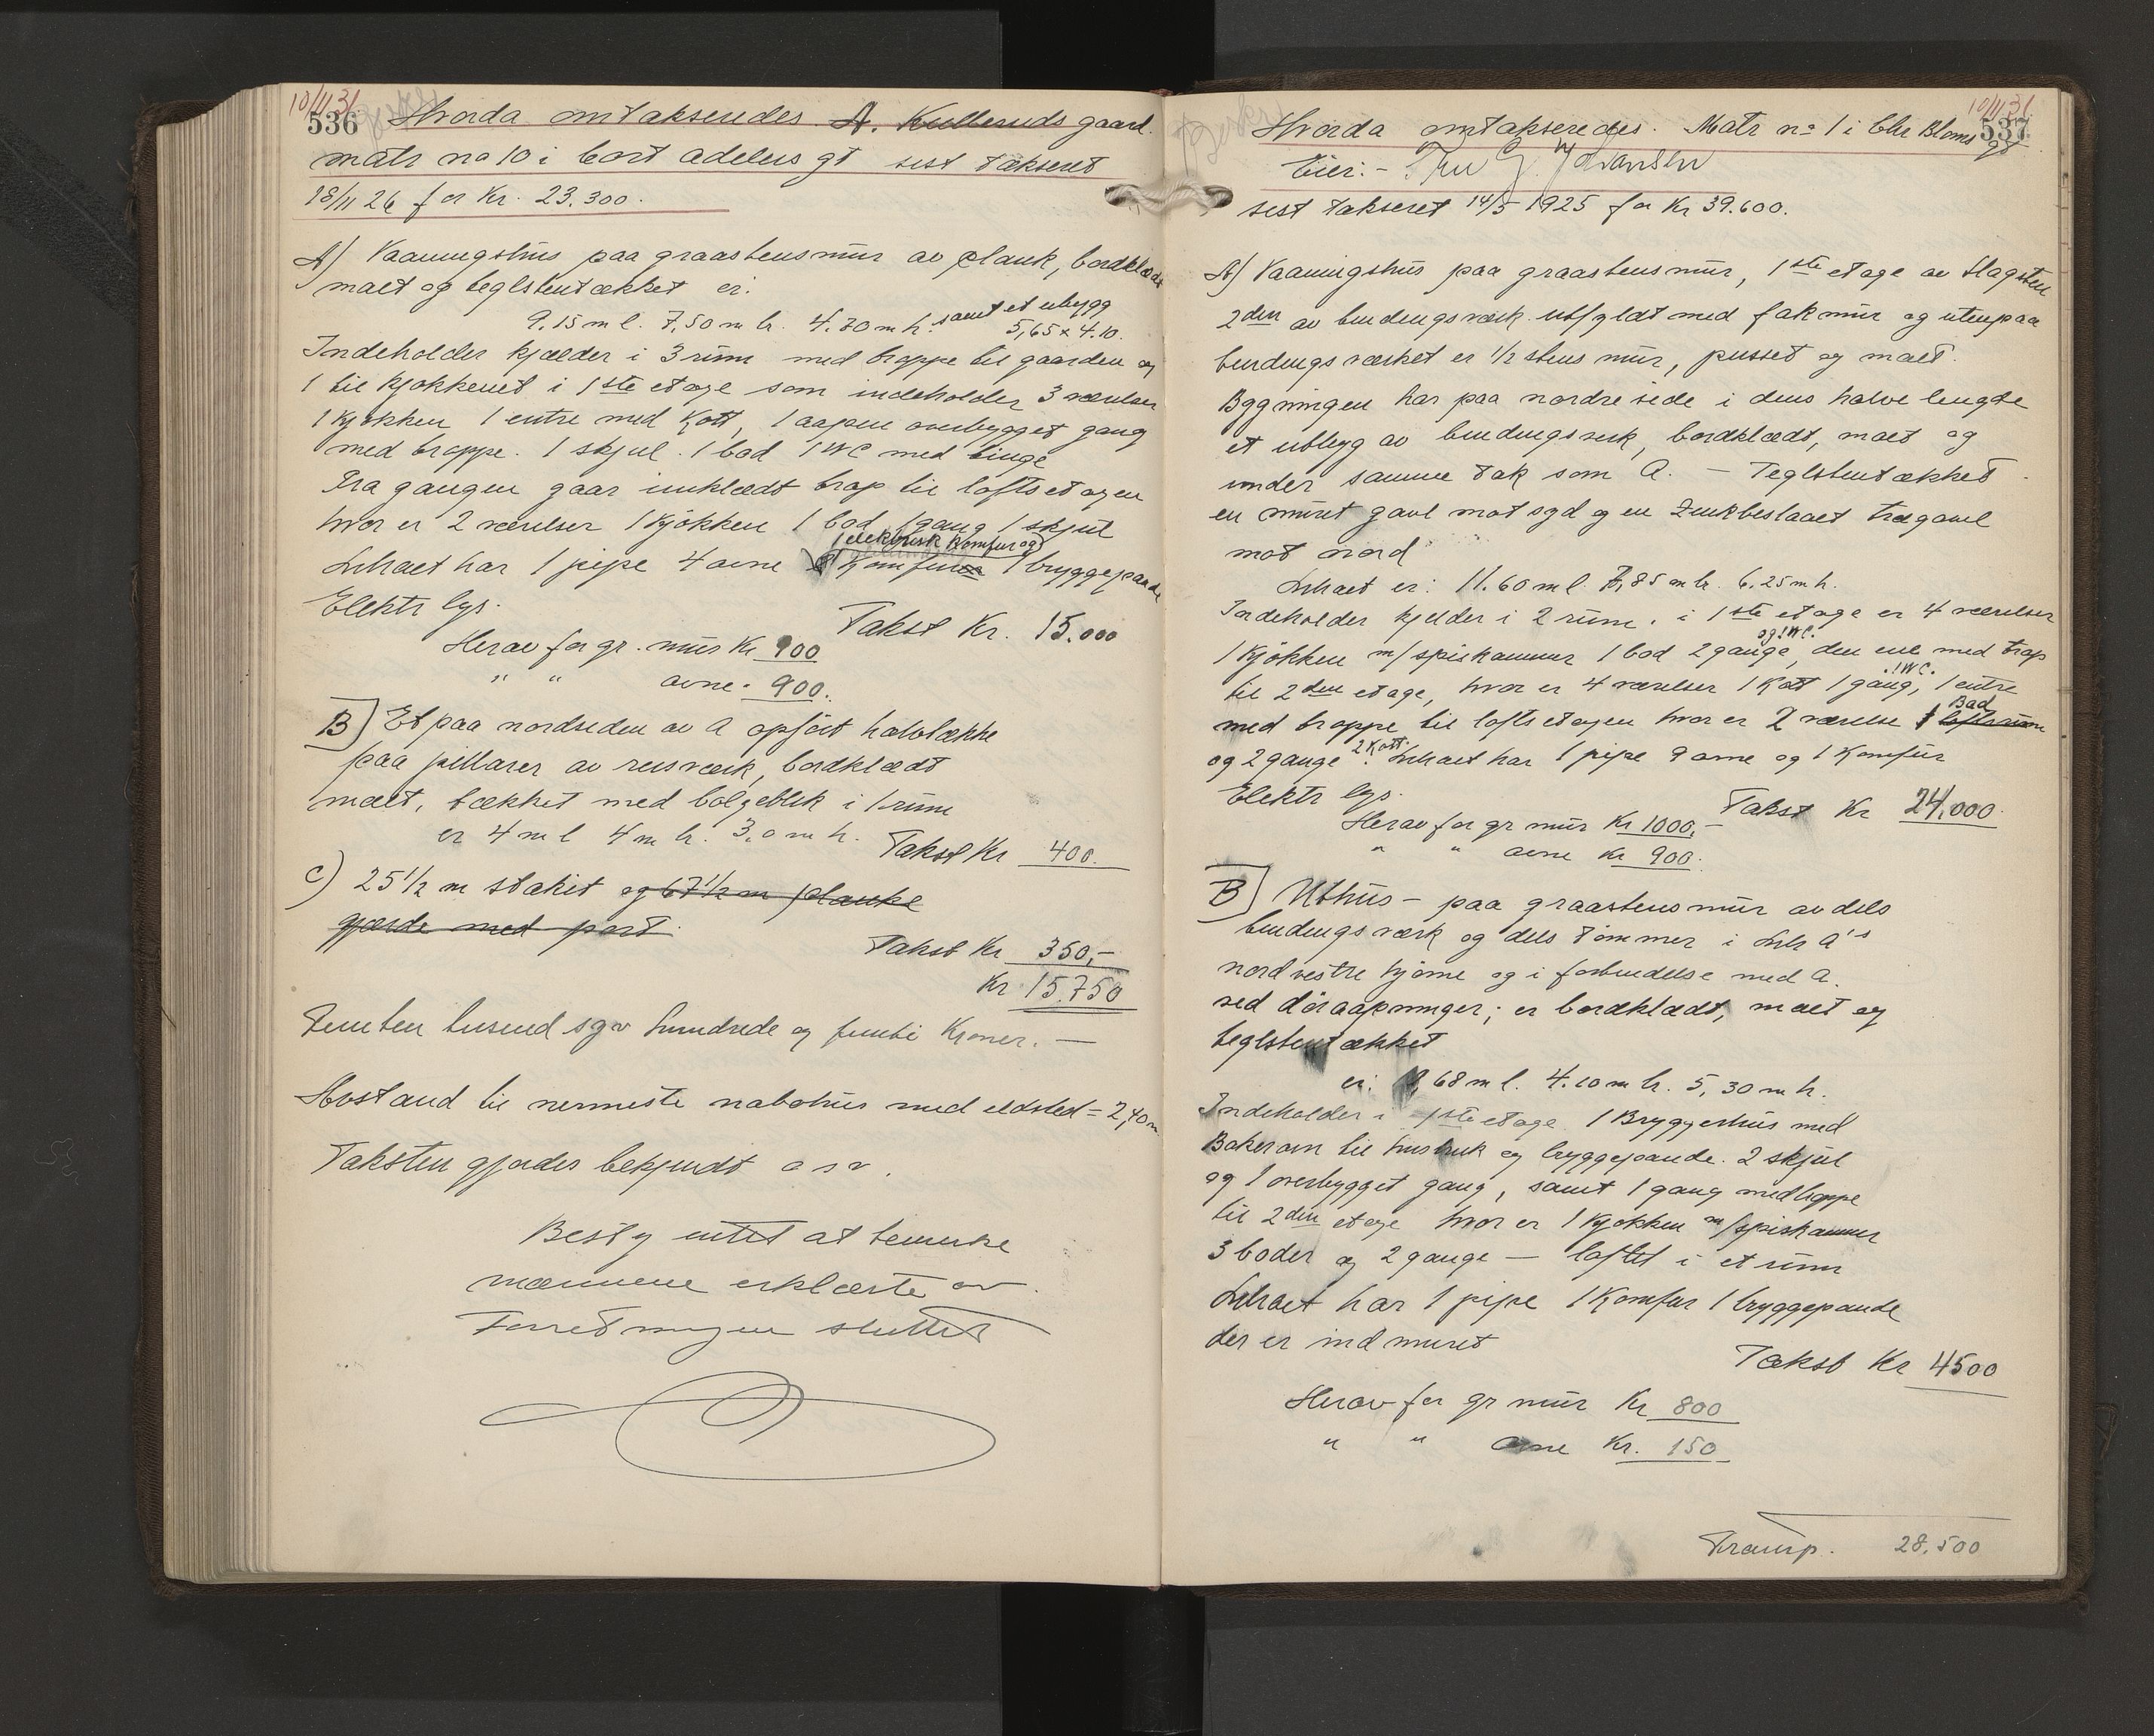 10/11 31
536 Hvorda omtakseredes A. Kulleruds gaard.
matr no 10 i Cort adelers gt sist takseret
18/11 26 for Kr. 23.300.
A) Vaaningshus paa graastensmur av plank, bordklædt
malt og teglstentækket er:
9.15 m l. 7,50 m br. 4.30 m h. samt et utbygg
5,65 x 4.10.
Indeholder kjælder i 3 rum med trappe til gaarden og
1 til kjøkkenet i 1ste etage som indeholder 3 værelser
1 kjøkken 1 entre med Kott, 1 aapen overbygget gang
med trappe. 1 skjul. 1 bod 1 WC med binge
Fra gangen gaar innklædt trap til loftsetagen
hvor er 2 værelser 1 kjøkken 1 bod 1 gang 1 skjul
1 elektrisk komfur og
Litraet har 1 pipe 4 ovne komfur 1 bryggepande
Elektr lys.
Takst Kr. 15.000
Herav for gr. mur Kr 900
" " ovne " 900.
B) Et paa nordsiden av A opført halvtække
paa pillarer av reisverk, bordklædt
malt, tækket med bølgeblik i 1 rum
er 4 m l 4 m br. 3.0 m h.
Takst Kr 400.
C) 25 1/2 m stakit og 67 1/2 m planke
gjærde med port
Takst Kr 350,-
Kr 15.750
Femten tusend syv hundrede og femti Kroner. —
Avstand til nermeste nabohus med ildsted = 2,40 m
Taksten gjordes bekjendt o s v.
Besty intet at bemerke
mænnene erklærte sv.
Forretningen sluttet
10/11 31
537
Hvorda omtakseredes. Matr no 1 i Chr Bloms gt
Eier:- Fru G. Johansen
sist takseret 14/5 1925 for Kr 39.600.
A) Vaaningshus paa graastensmur, 1ste etage av Slagsten
2den av bindingsværk utfyldt med fakmur og utenpaa
bindingsværket er 1/2 stens mur, pusset og malt.
Bygningen har paa nordre side i dens halve lengde
et utbygg av bindingsverk, bordklædt, malt og
under samme tak som A. — Teglstentækket.
en muret gavl mot syd og en Zinkbeslaaet trægavl
mot nord
Litraet er: 11.60 m l. 7,85 m br. 6.25 m h.
Indeholder kjelder i 2 rum. i 1ste etage er 4 værelser
og 1 WC.
1 kjøkken m/ spiskammer 1 bod 2 gange, den ene med trap
1 WC.
til 2den etage, hvor er 4 værelser 1 Kott 1 gang, 1 entre
Bad
med trappe til loftsetagen hvor er 2 værelse 1 loftsrum
og 2 gange 2 Kott. Litraet har 1 pipe 9 ovne og 1 Komfur
Elektr lys.
Takst Kr 24.000.
Herav for gr mur Kr 1000,-
" " ovne Kr 900.
B) Uthus - paa graastens mur av dels
bindingsværk og dels tømmer i Litr A's
nordvestre hjørne og i forbindelse med A.
ved døraapninger; er bordklædt, malt og
teglstentækket
er: ,68 m l. 4.10 m br. 5,30 m h.
Indeholder i 1ste etage 1 Bryggerhus med
Bakerovn til husbruk og bryggepande. 2 skjul
og 1 overbygget gang, samt 1 gang med trappe
til 2den etage hvor er 1 kjøkken m/ spiskammer
3 boder og 2 gange — loftet i et rum
Litraet har 1 pipe 1 Komfur 1 bryggepande
der er ind muret
Takst Kr 4500
Herav for gr mur Kr 800
" " ovne Kr. 150
Transp. 28.500